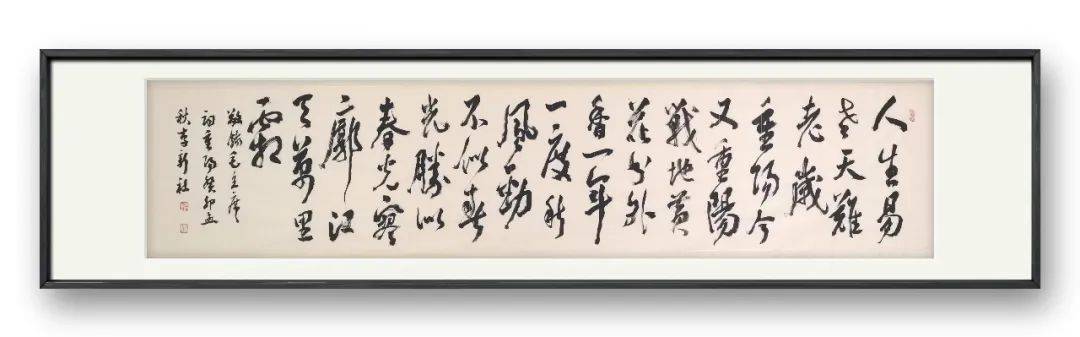 人生易
老天難
老歲
重陽今
又重陽
戰地黃
花分外
香一年
一度秋
風勁
不似春
光勝似
春光寥
廓江
天萬里
霜
敬錄毛主席
詞重陽癸卯孟
秋李新社